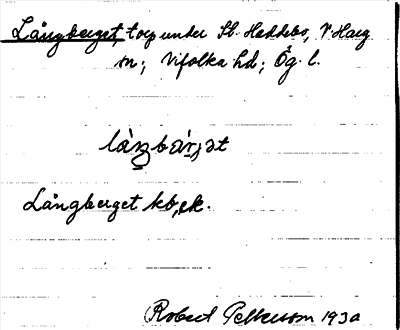 Långberget, torp under St. Haddebo, V Harg
sn; Vifolka hd; Ög. l.
Långberget kb, ek.
Robert Pettersson 1930